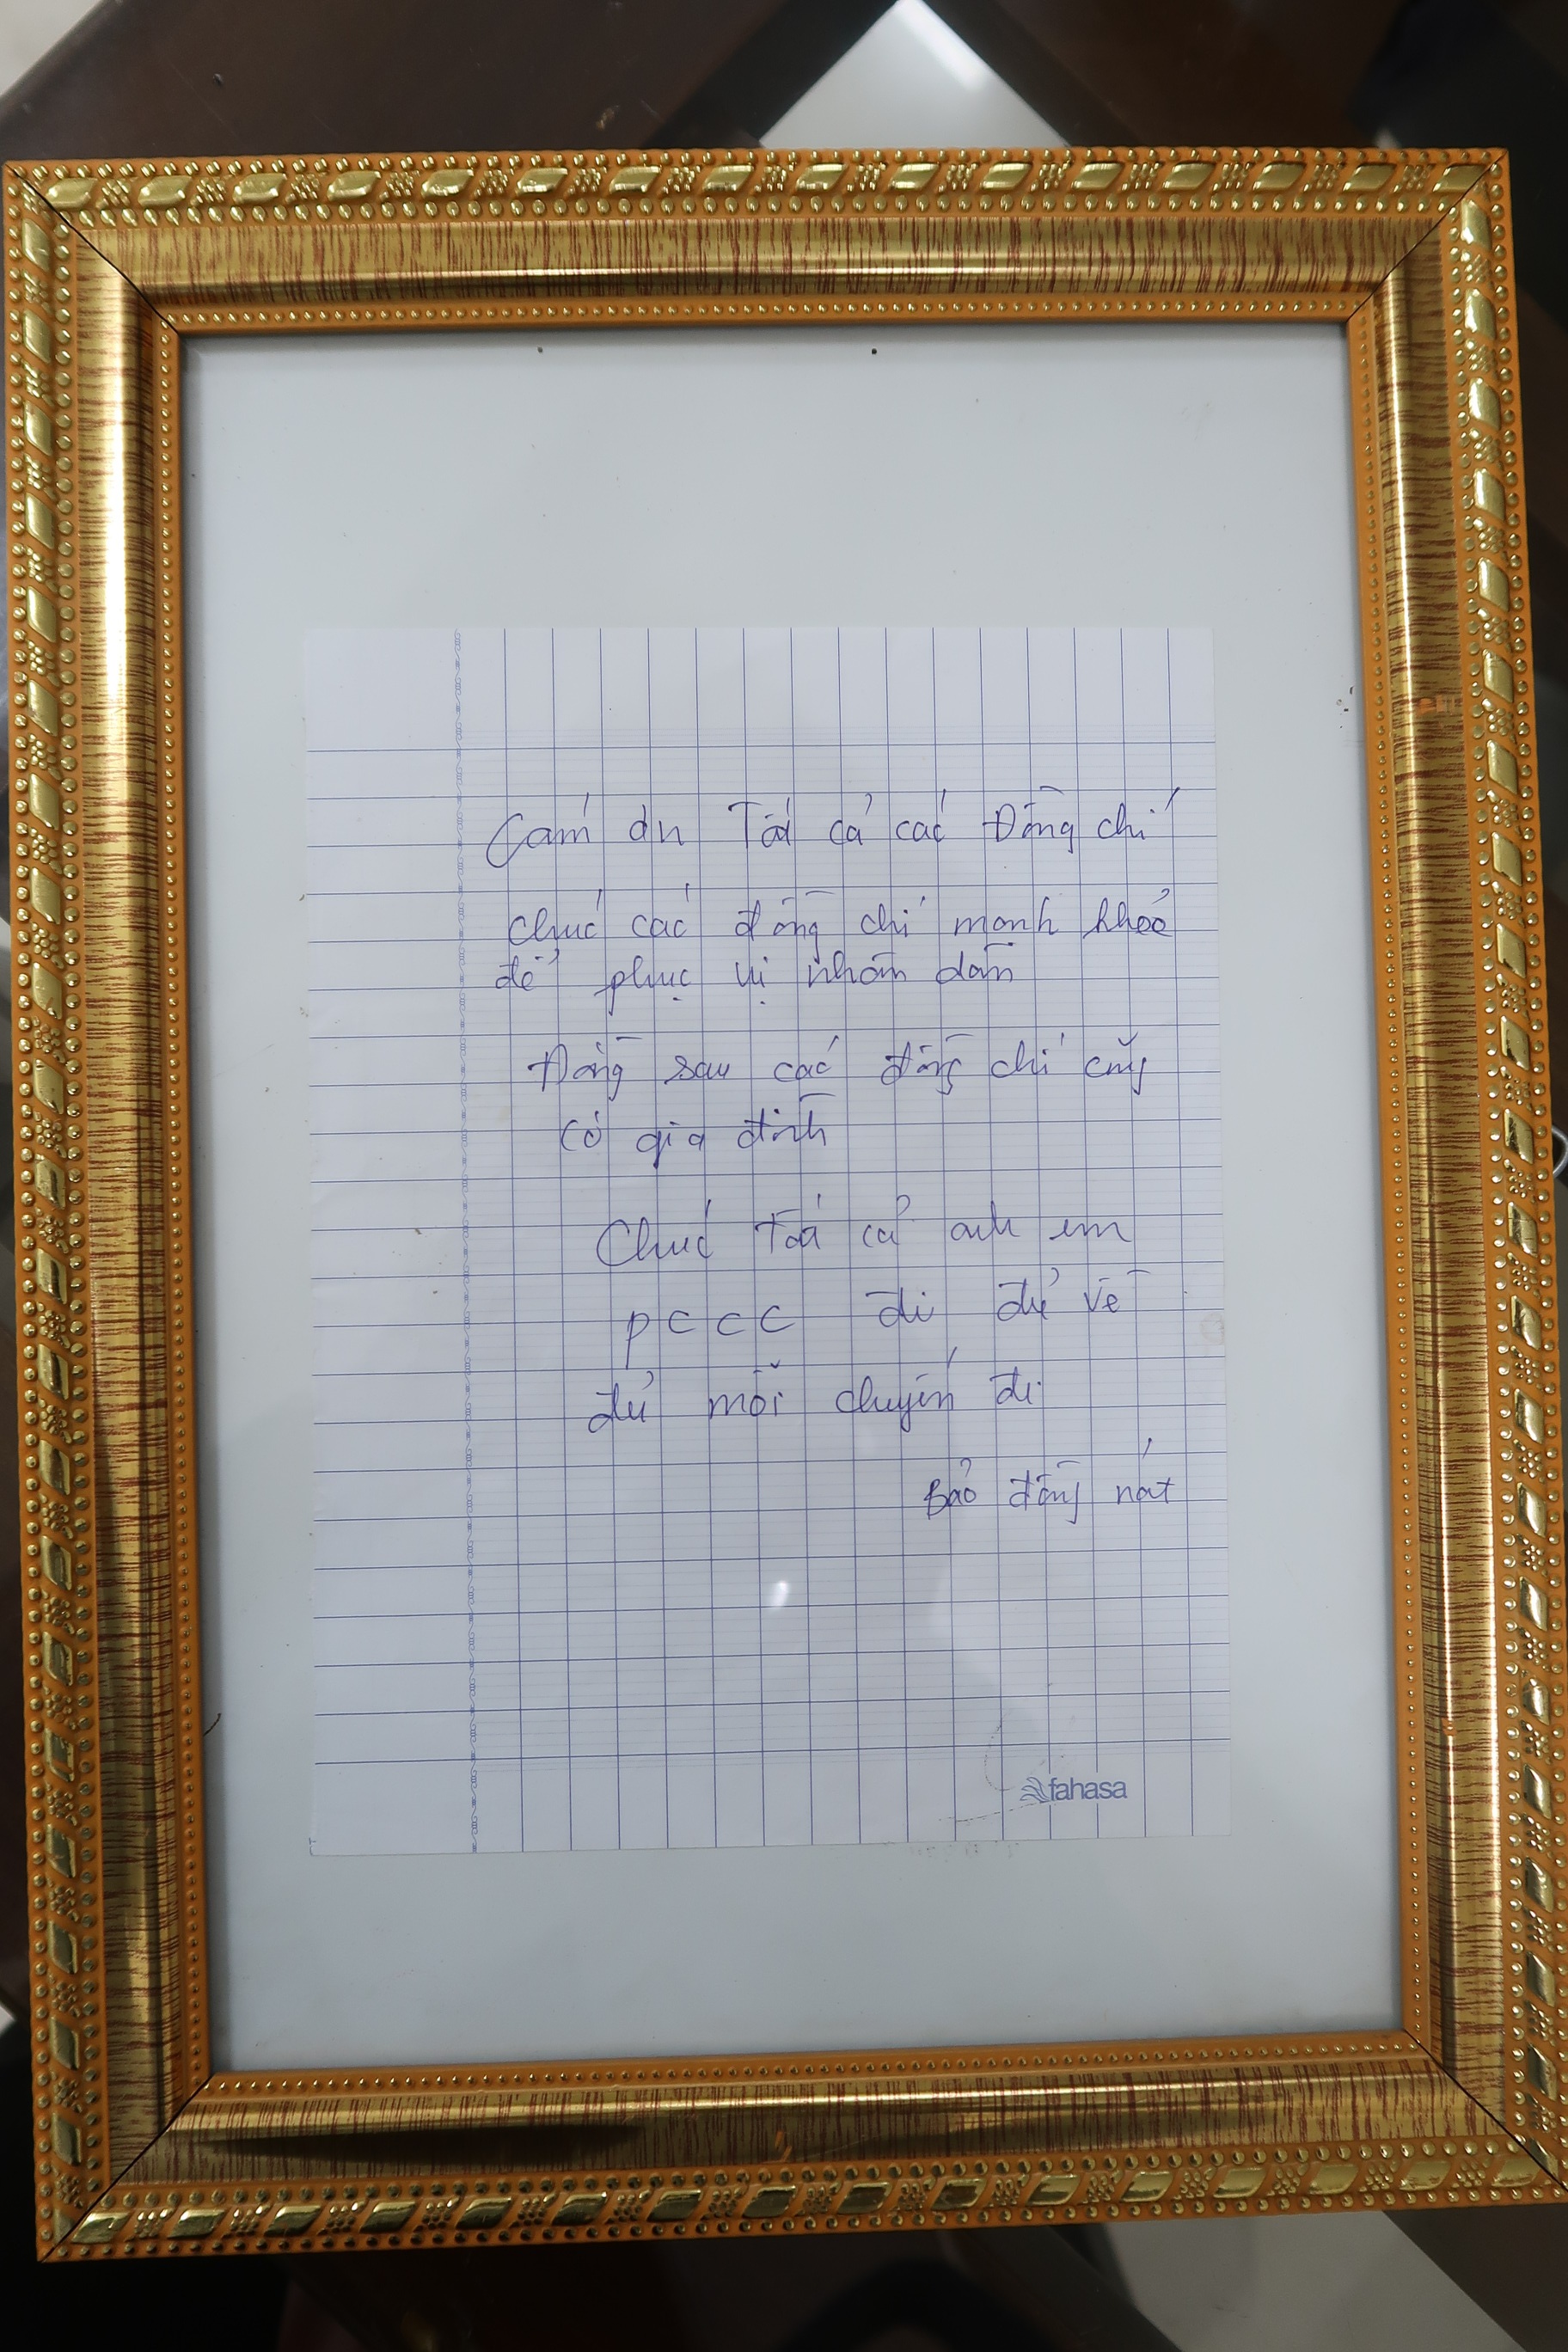 Cám ơn Tất cả các Đồng chí
Chúc các đồng chí mạnh khoẻ
để phục vụ nhân dân
Đằng sau các đồng chí cũng
có gia đình
Chúc Tất cả anh em
PCCC đi đủ về
đủ mỗi chuyến đi
Bảo đồng nát
fahasa